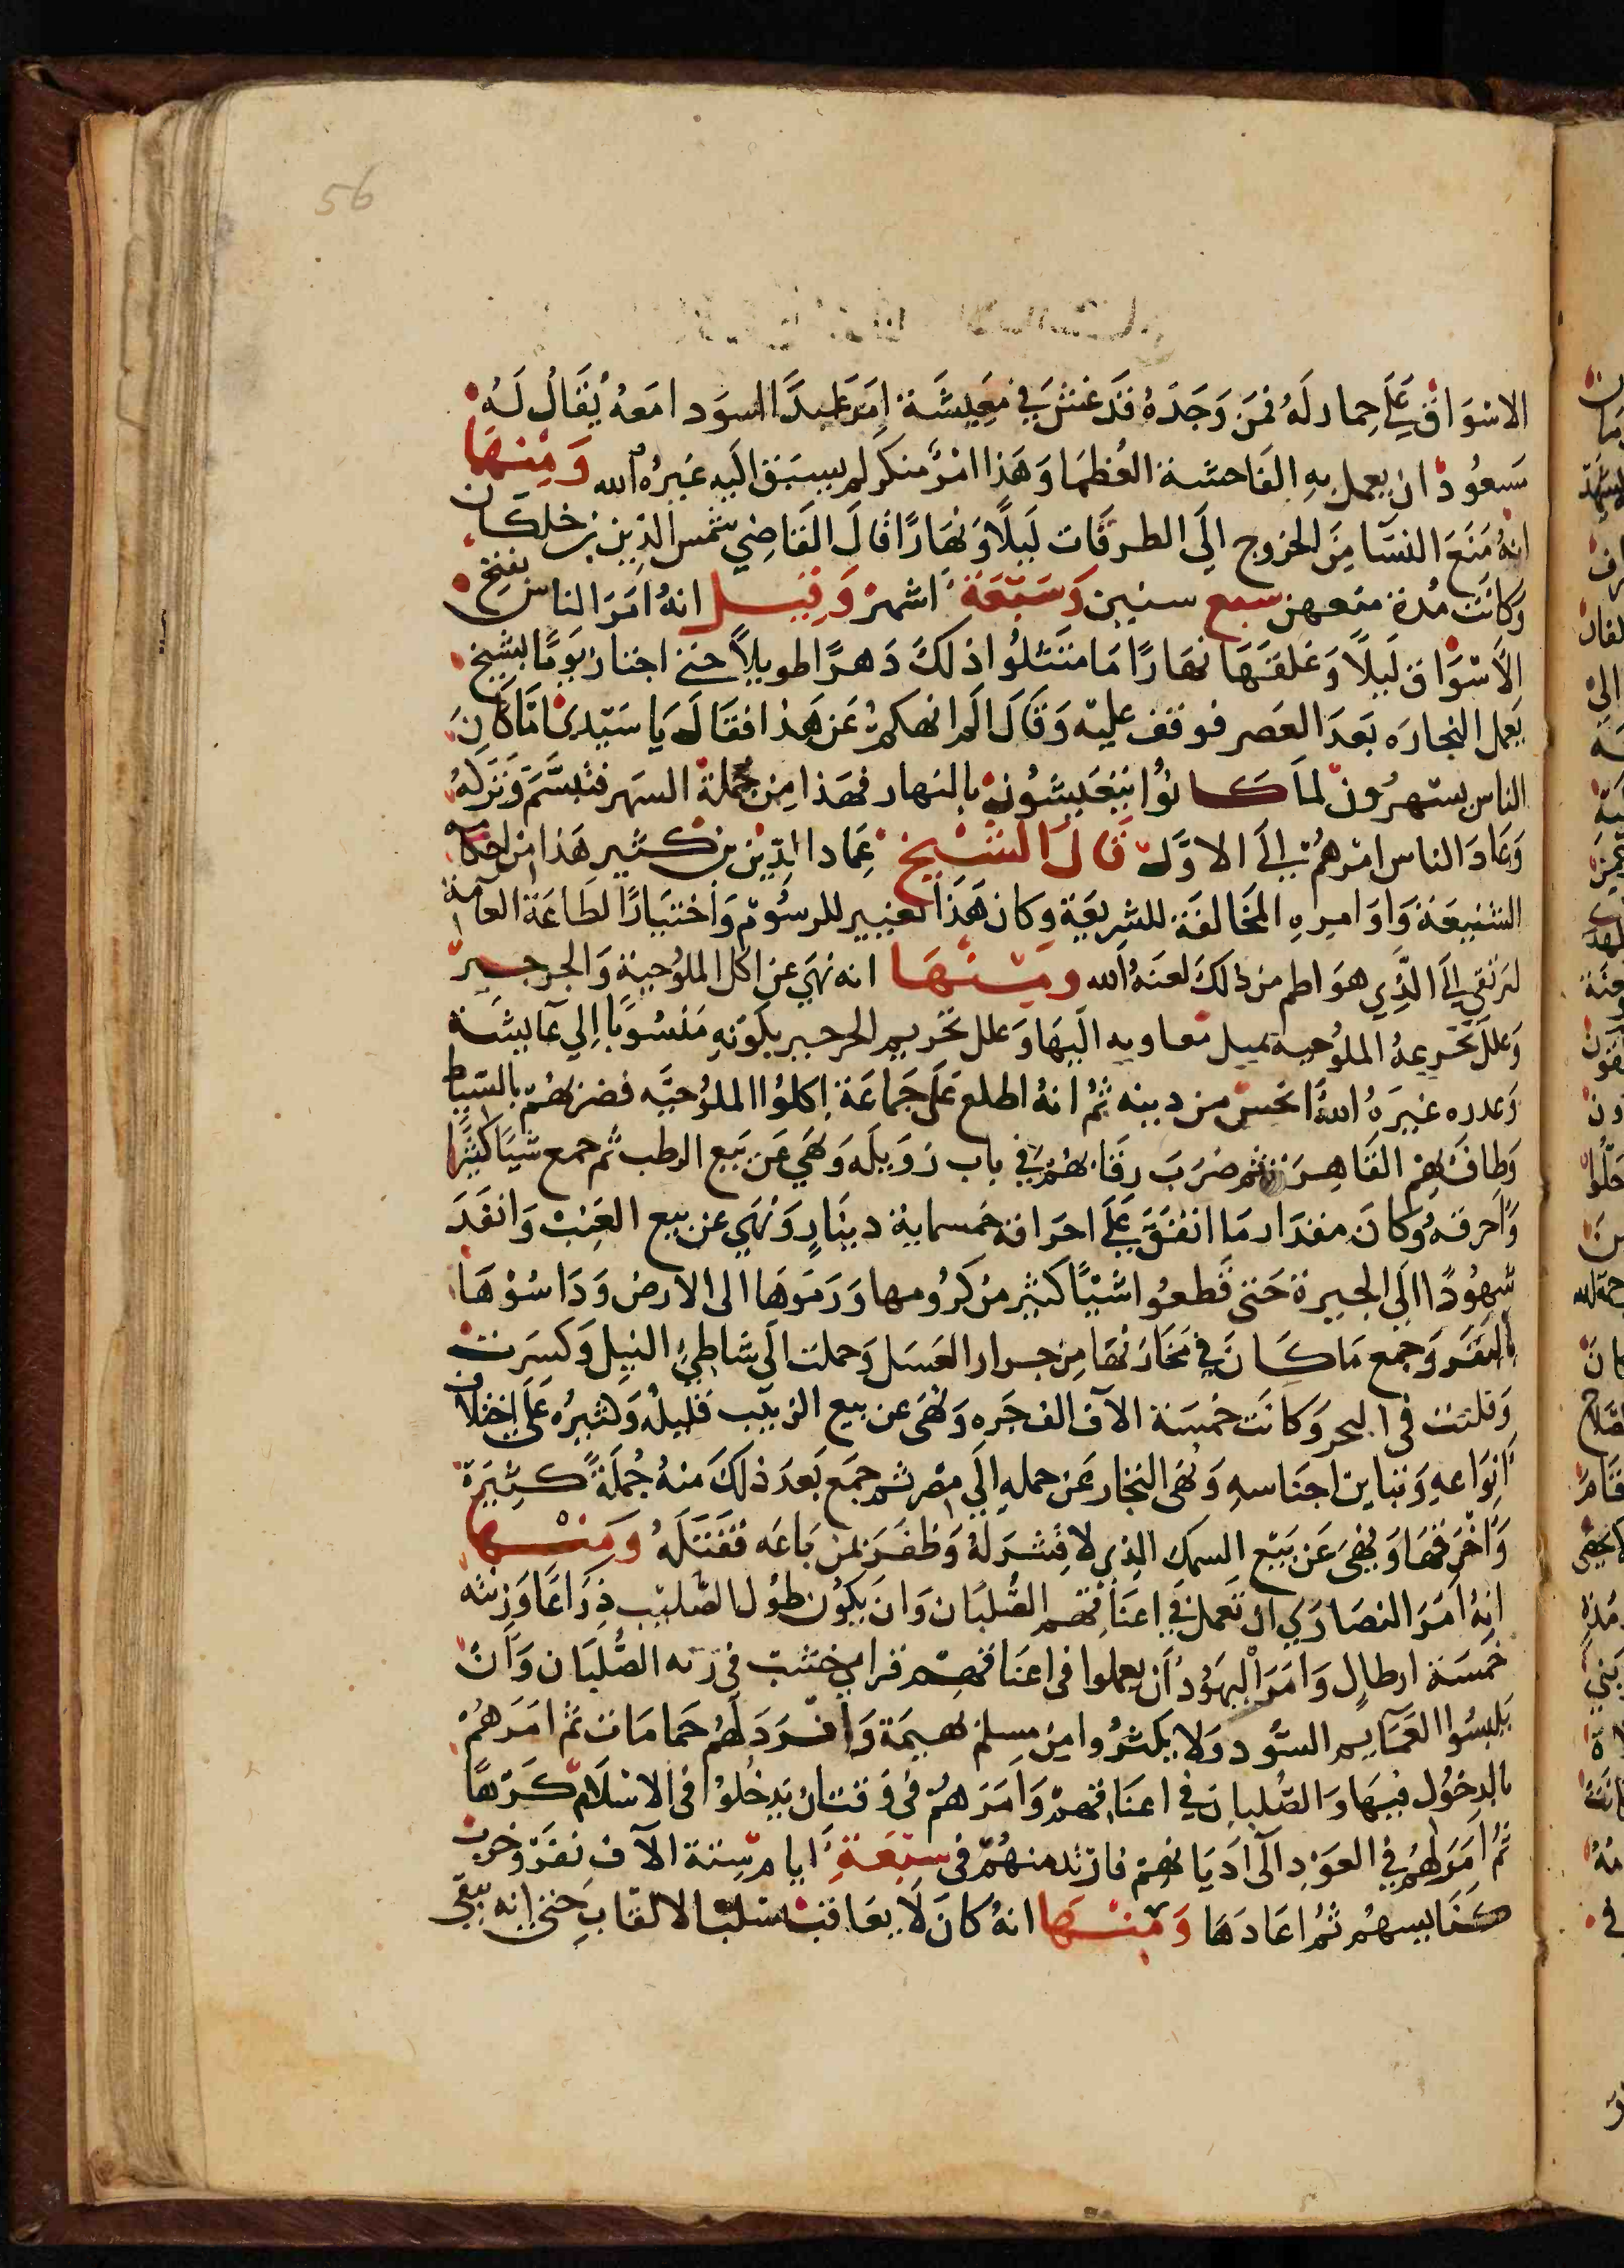 56
الاسْوَاق عَلَى حِمار لَهُ فمَن وَجَدَهُ قَد غَشَّ في مَعِيشَة اَمَرَ عَبدًا اسوَد امَعهُ يُقَالُ لَهُ
سَعُود ان يعمل بِهِ الفَاحشة العُظمَا وَهَذا امْرٌ منكر لم يسبَق اليَهِ غَيرُه الله وَمِنهَا
انهُ مَنَعَ النسَآ مِنَ الخروج اِلَى الطرقَات لَيلًا وَنَهَارًا قالَ القَاضِي شمس الدِين بن خلكَان
وكَانَت مُدة منعهن سبع سنيين وَسَبْعَة اشهر وَقِيل انهُ امَرَ الناس بفتح
الاَسْوَاق لَيلًا وَغلقَهَا نهَارًا مَا متَثلُوا ذلكَ دَهرًا طويلًا حتى اجتاز يَومًا بشيخ
يَعمل النجارَه بَعدَ العَصر فوقف عليه وَقَالَ الم انهكم عَن هذا فقالَ يَا سَيّدِى امَّا كَانَ
الناس يسهرُون لما كَانُوا يتعَيشُون بالنهار فهَذا مِن جُملة السهر فتبَسَّمَ وَتَرَكهُ
وَعَادَ الناس امرهُم الى الاوَّل قَالَ الشَيْخ عِمَاد الدِّين بن كثير هَذا مِن احكامه
الشنيعَة وَاوَامِرِهِ المخَالفَة للشرِيعَة وكان هَذَا تغيير للرسُوْم وَاختبَارًا لطَاعَة العَامة
ليَرتقى الَى الَّذِي هوَ اطم من ذلكَ لعنَهُ الله ومِنْهَا انه نهَي عن اكل الملُوخية وَالجرجير
وعللَ تحريمهُ الملُوخيه بميل معاويه اليَهَا وَعلل تحريم الجرجير بكَونهِ مَنسُوبًا اِلى عَايشَة
وَعدده غيرَهُ اللهُ انحسّ من دينه ثُم انهُ اطلع عَلَى جَمَاعَة اكلوُا الملُوخيَّه فضربهُم بالسّياط
وَطافَ بهِم القَاهِرَة ثم ضرَبَ رقَابهُم في باب زوَيلَه وَنهَي عَن بَيع الرطب ثم جمع شيًا كثيرًا
وَاحرقهُ وكانَ مقدَار مَا انفَقَ عَلَى احرَاقه خمسماية دِينَارٍ وَنهَي عن بيع العِنَب وَانفَدَ
شهُودًا اِلَى الجيزة حَتى قطعُوا شيًا كثير مِن كرُومها وَرَمَوهَا الى الارض وَدَاسُوْهَا
بالبَقَر وَجمع مَا كَانَ في مَخَازنهَا مِن جرار العَسَل وَحملت الَى شاطئ النيل وَكسَرت
وَقلبت فى البحر وَكَانَت خمسَة الآف الف جَره وَنهَى عن بيع الزبيب قليلُه وَكثيرُه عَلَى اختلاف
اَنوَاعهِ وَتباين اجنَاسهِ وَنهَى التجار عَن حملهِ اِلَى مِصر ثم جمَع بَعدَ ذلكَ منهُ جُملَةً كثِيرَة
وَاحْرَقهَا وَنهَى عَن بَيْع السمك الذى لا قِشرَ لهُ وَظفَرَ بمن بَاعَه فقَتَلَهُ وَمِنْهَا
انهُ اَمَرَ النصَارَي ان تَعمَل في اعنَاقهم الصُّلبَان وَان يَكُون طُول الصَّليب ذِرَاعًا وَزنته
خَمسَة ارطالٍ وَامَرَ اليهُودَ اَن يعملوا فى اعنَاقهم قرامى خشب فى زنه الصُّلبَان وَانْ
يَلبسُوا العَمَآيم السُّود وَلا يكتُروا مِن مسلم بهيمَة وَافرَدَ لَهُم حَمامَات ثم امَرَهُم
بالدخُول فيهَا وَالصُّلبان فى اعنَاقهم وَاَمَرَهُم فى وَقت ان يَدخُلوُا فى الاسْلَام كَرْهًا
ثُم اَمَرَ لهُم في العَوَدِ الَى ادَيَانهم فارْتد منهُم فى سبْعَةِ اَيام سِتة الآف نفَر وَخرب
كنَايسهُم ثُم اعَادَهَا وَمِنْهَا انهُ كان لَا يعَاقب بسَلب الالقَاب حتى انه يبقى